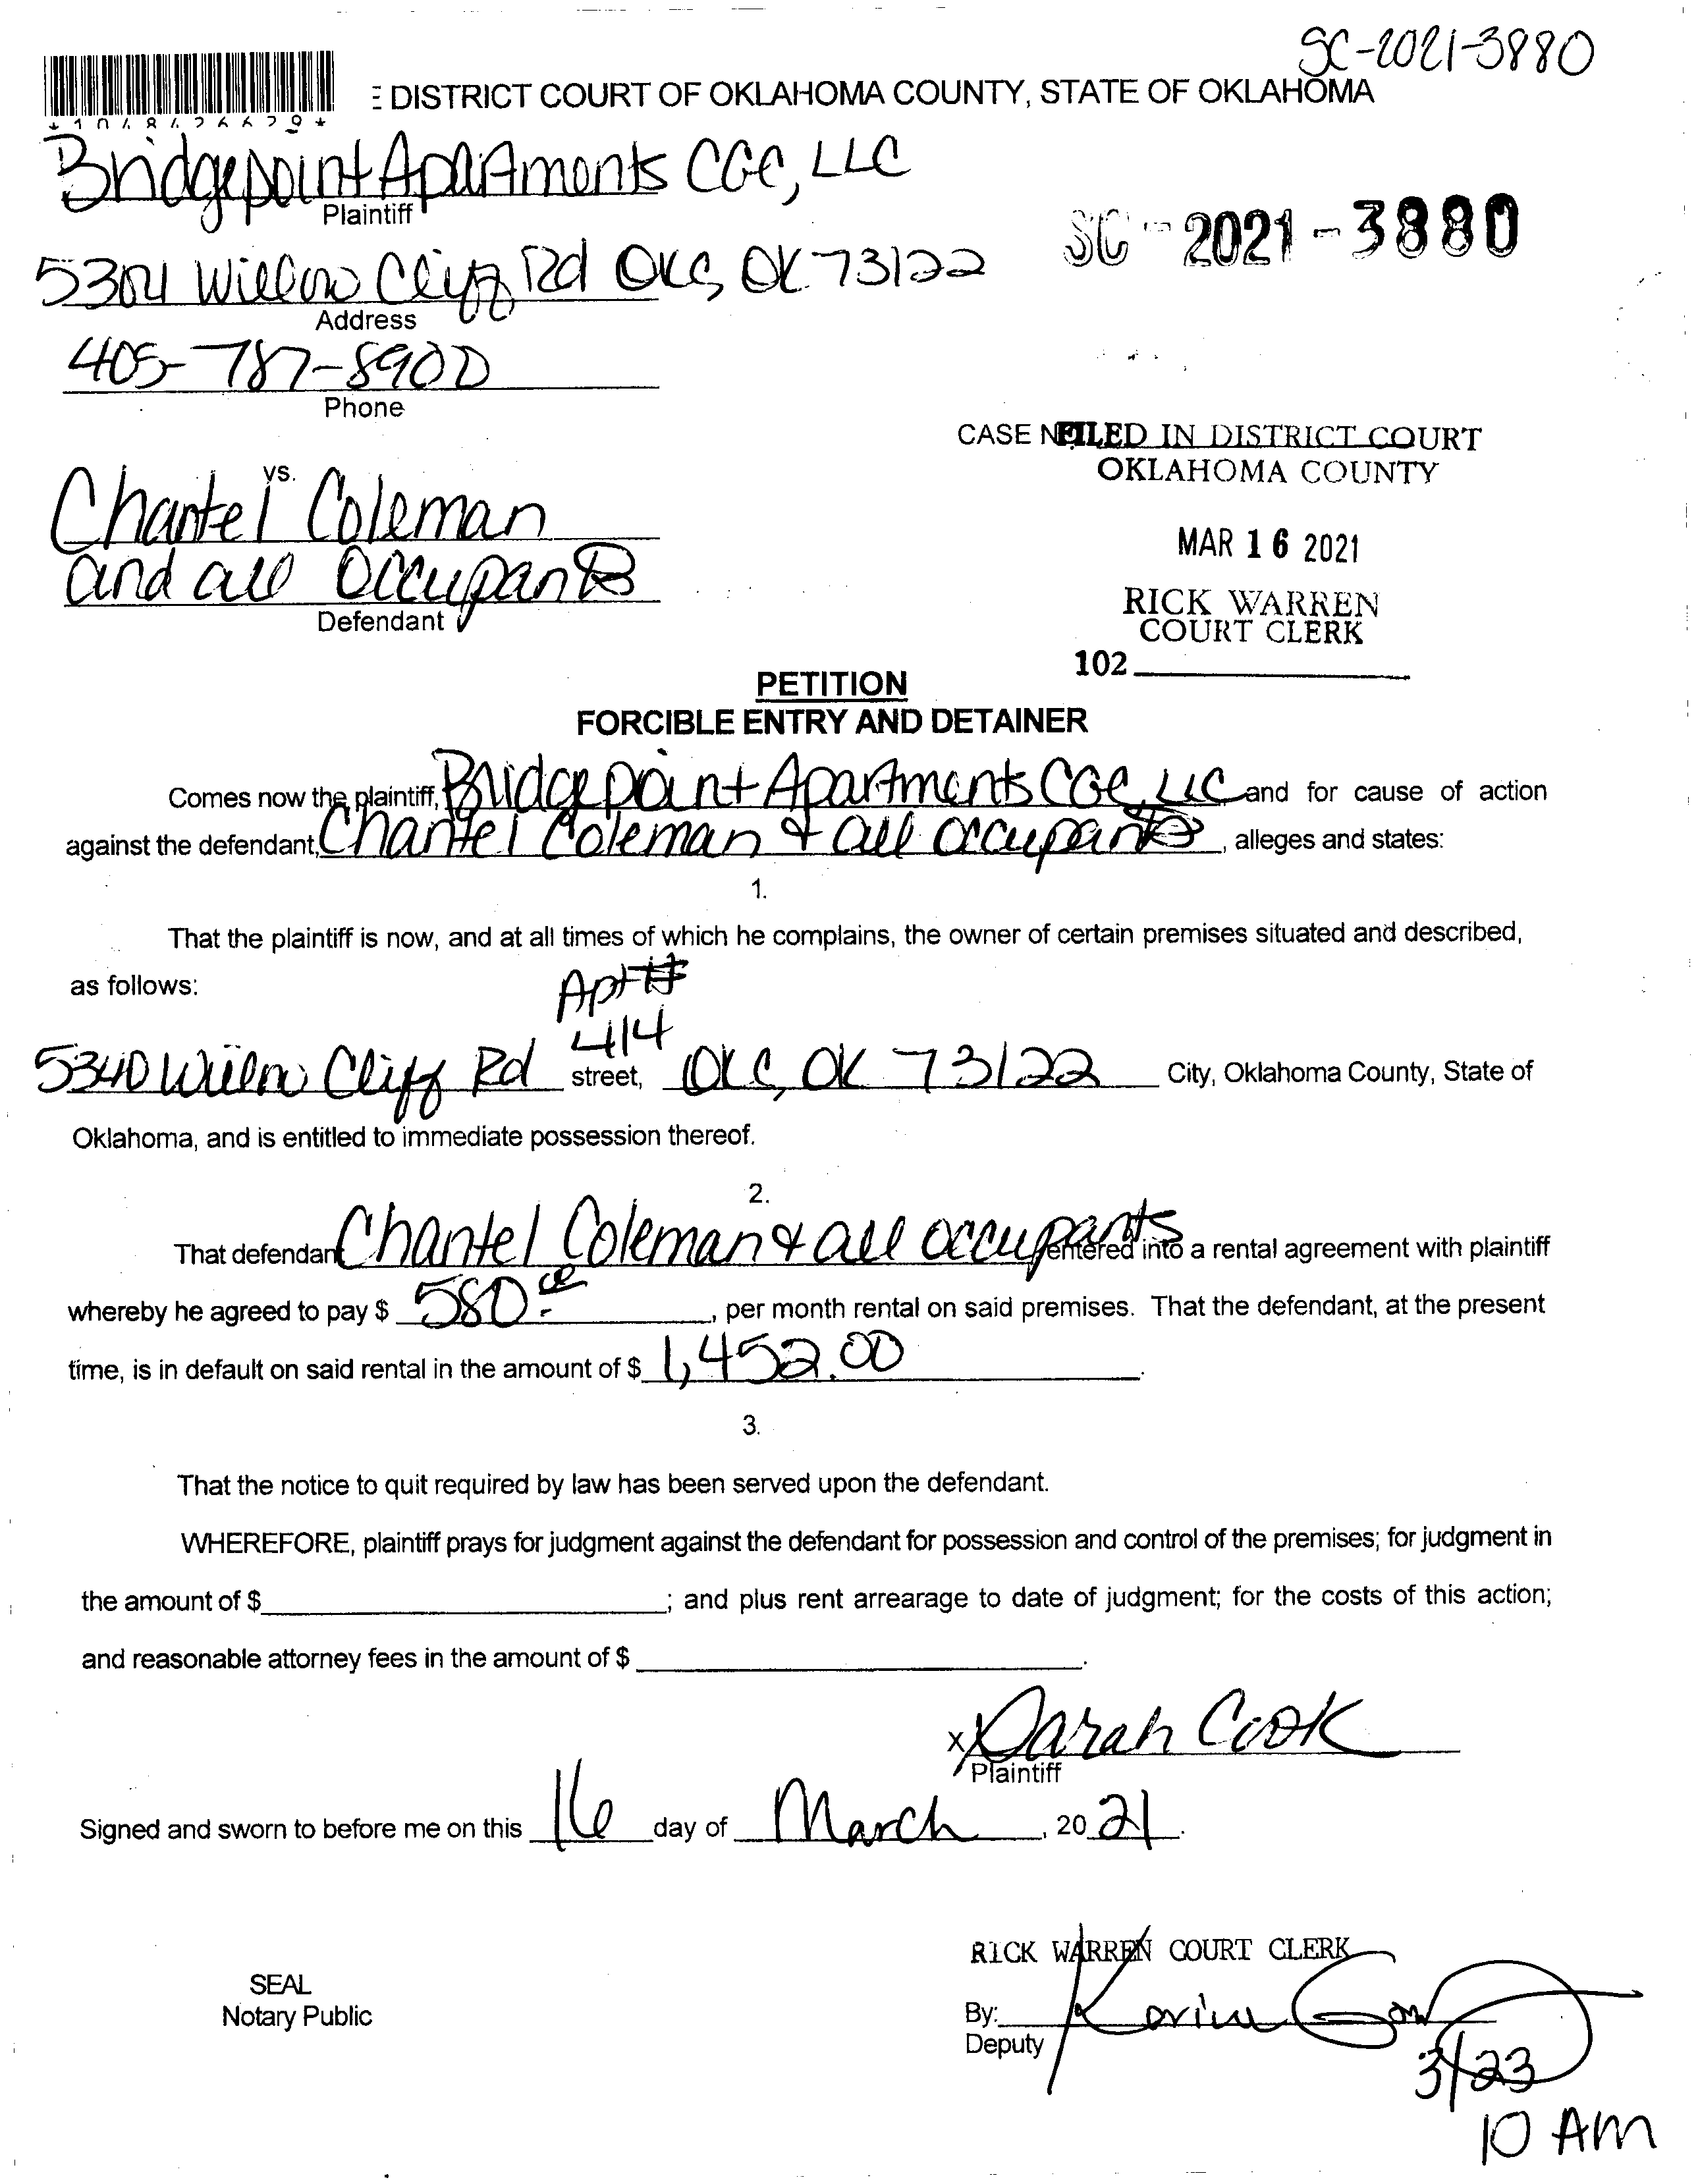 SC-2021-3880
DISTRICT COURT OF OKLAHOMA COUNTY, STATE OF OKLAHOMA
Bridgepoint Apartments CGC, LLC
Plaintiff
SC-2021-3880
5304 Willow Cliff Rd OKC, OK 73122
Address
405-787-8900
Phone
CASE N
FILED IN DISTRICT COURT
OKLAHOMA COUNTY
vs.
Chantel Coleman
MAR 16 2021
and all Occupants
Defendant
RICK WARREN
COURT CLERK
102
PETITION
FORCIBLE ENTRY AND DETAINER
Comes now the plaintiff, Bridgepoint Apartments CGC, LLC and for cause of action
against the defendant, Chantel Coleman & all occupants, alleges and states:
1.
That the plaintiff is now, and at all times of which he complains, the owner of certain premises situated and described,
as follows:
Apt #
414
5340 Willow Cliff Rd street, OKC, OK 73122 City, Oklahoma County, State of
Oklahoma, and is entitled to immediate possession thereof.
2.
That defendant Chantel Coleman & all occupants entered into a rental agreement with plaintiff
whereby he agreed to pay $ 580.00, per month rental on said premises. That the defendant, at the present
time, is in default on said rental in the amount of $ 1,452.00.
3.
That the notice to quit required by law has been served upon the defendant.
WHEREFORE, plaintiff prays for judgment against the defendant for possession and control of the premises; for judgment in
the amount of $ ; and plus rent arrearage to date of judgment; for the costs of this action;
and reasonable attorney fees in the amount of $ .
x Sarah Cook
Plaintiff
Signed and sworn to before me on this 16 day of March, 2021.
RICK WARREN COURT CLERK
SEAL
Notary Public
By:
Deputy
3/23
10 AM